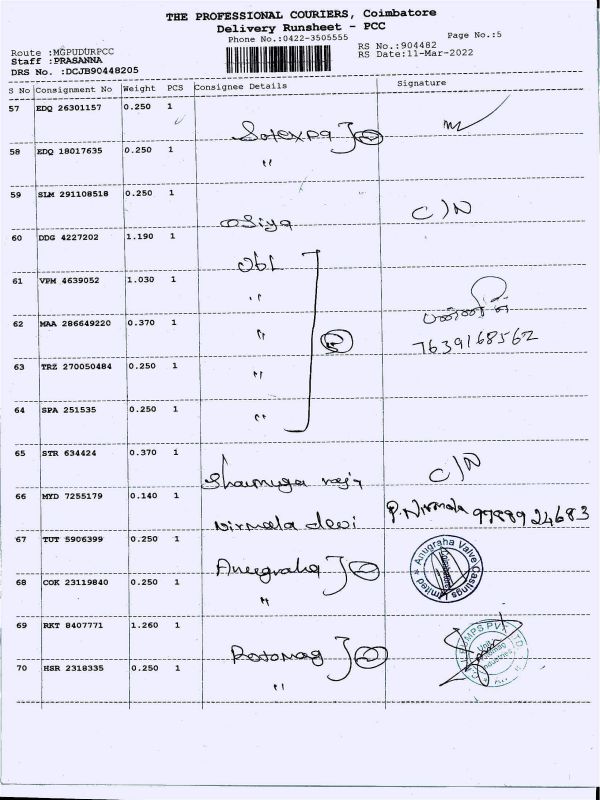 THE PROFESSIONAL COURIERS, Coimbatore
Delivery Runsheet - PCC
Phone No.:0422-3505555
Page No.:5
Route :MGPUDURPCC
RS No.:904482
Staff :PRASANNA
RS Date:11-Mar-2022
DRS No. :DCJB90448205
S No Consignment No Weight PCS Consignee Details Signature
57 EDQ 26301157 0.250 1
58 EDQ 18017635 0.250 1
"
59 SLM 291108518 0.250 1
C/N
60 DDG 4227202 1.190 1
61 VPM 4639052 1.030 1
"
62 MAA 286649220 0.370 1
"
7639168562
63 TRZ 270050484 0.250 1
"
64 SPA 251535 0.250 1
"
65 STR 634424 0.370 1
C/N
66 MYD 7255179 0.140 1
Nirmala devi P. Nirmala
67 TUT 5906399 0.250 1
Anugraha Anugraha Valve Castings Limited
68 COK 23119840 0.250 1
"
69 RKT 8407771 1.260 1
70 HSR 2318335 0.250 1
"